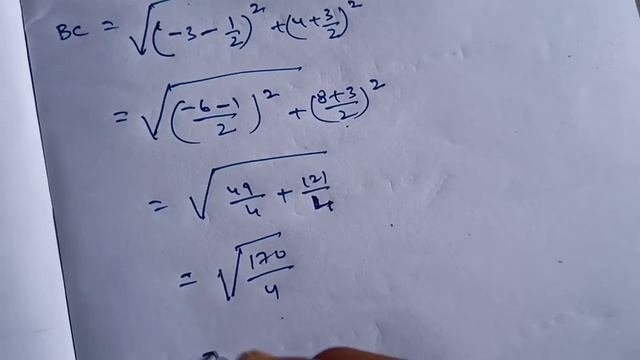 BC = √(-3 - 1/2)² + (4 + 3/2)²
= √((-6-1)/2)² + ((8+3)/2)²
= √49/4 + 121/4
= √170/4